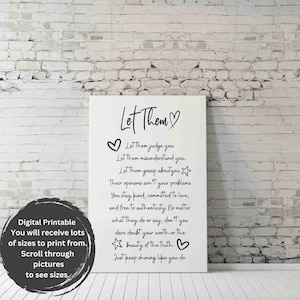 Let Them
Let them judge you
Let them misunderstand you
Let them gossip about you
Their opinions aren't your problems.
You stay kind, committed to love,
and free to authenticity. No matter
what they do or say, don't you
dare doubt your worth or the
beauty of the truth.
Just keep shining like you do
Digital Printable
You will receive lots
of sizes to print from.
Scroll through
pictures
to see sizes.